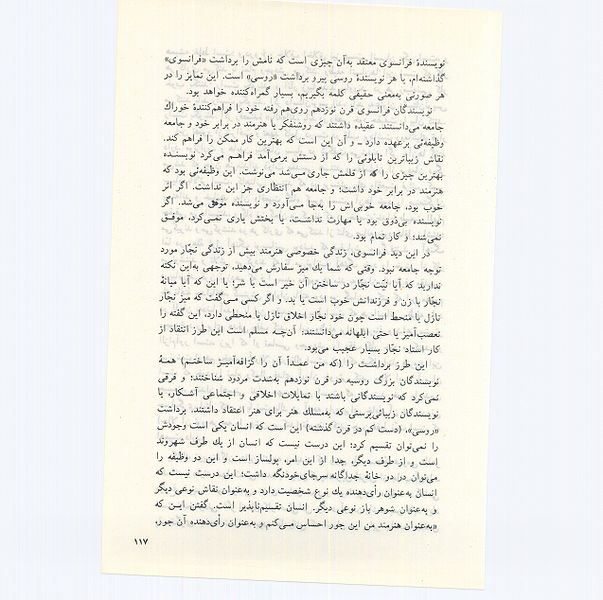 نویسندهٔ فرانسوی معتقد به‌آن چیزی است که نامش را برداشت «فرانسوی»
گذاشته‌ام، یا هر نویسندهٔ روسی پیرو برداشت «روسی» است. این تمایز را در
هر صورتی به‌معنی حقیقی کلمه بگیریم، بسیار گمراه‌کننده خواهد بود.
نویسندگان فرانسوی قرن نوزدهم روی‌هم رفته خود را فراهم‌کنندهٔ خوراك
جامعه می‌دانستند. عقیده داشتند که روشنفکر یا هنرمند در برابر خود و جامعه
وظیفه‌ئی برعهده دارد ـ و آن این است که بهترین کار ممکن را فراهم کند.
نقاش زیباترین تابلوئی را که از دستش برمی‌آمد فراهـم می‌کرد نویسنـده
بهترین چیزی را که از قلمش جاری مـی‌شد می‌نوشت. این وظیفه‌ئی بود که
هنرمند در برابر خود داشت؛ و جامعه هم انتظاری جز این نداشت. اگر اثر
خوب بود، جامعه خوبی‌اش را به‌جا مـی‌آورد و نویسنده موفق می‌شد. اگر
نویسنده بی‌ذوق بود یا مهارت نداشـت، یا بختش یاری نمـی‌کرد، موفـق
نمی‌شد؛ و کار تمام بود.
در این دید فرانسوی، زندگی خصوصی هنرمند بیش از زندگی نجّار مورد
توجه جامعه نبود. وقتی که شما یك میز سفارش می‌دهید، توجهی به‌این نکته
ندارید که آیا نیّت نجّار در ساختن آن خیر است یا شر؛ یا این که آیا میانهٔ
نجّار با زن و فرزندانش خوب است یا بد. و اگر کسی مـی‌گفت که میز نجّار
نازل یا منحط است چون خود نجّار اخلاق نازل یا منحطی دارد، این گفته را
تعصب‌آمیز یا حتی ابلهانه می‌دانستند؛ آن‌چـه مسلم است این طرز انتقاد از
کار استاد نجّار بسیار عجیب می‌بود.
این طرز برداشـت را (که من عمـداً آن را گزافه‌آمیـز ساختـم) همـهٔ
نویسندگان بزرگ روسیه در قرن نوزدهم به‌شدت مردود شناختند؛ و فرقی
نمی‌کرد که نویسندگانی باشند با تمایلات اخلاقی و اجتماعی آشکار، یا
نویسندگان زیبائی‌پرستی که به‌مسلك هنر برای هنر اعتقاد داشتند. برداشت
«روسی»، (دست کم در قرن گذشته) این است که انسان یکی است وجودش
را نمی‌توان تقسیم کرد؛ این درست نیست که انسان از یك طرف شهروند
است و از طرف دیگر، جدا از این امر، پولساز است و این دو وظیفه را
می‌توان در دو خانهٔ جداگانه سرجای‌خودنگه داشت؛ این درست نیست که
انسان به‌عنوان رأی‌دهنده یك نوع شخصیت دارد و به‌عنوان نقاش نوعی دیگر
و به‌عنوان شوهر باز نوعی دیگر. انسان تقسیم‌ناپذیر است. گفتن ایـن که
«به‌عنوان هنرمند من این جور احساس مـی‌کنم و به‌عنوان رأی‌دهنده آن جور،
۱۱۷